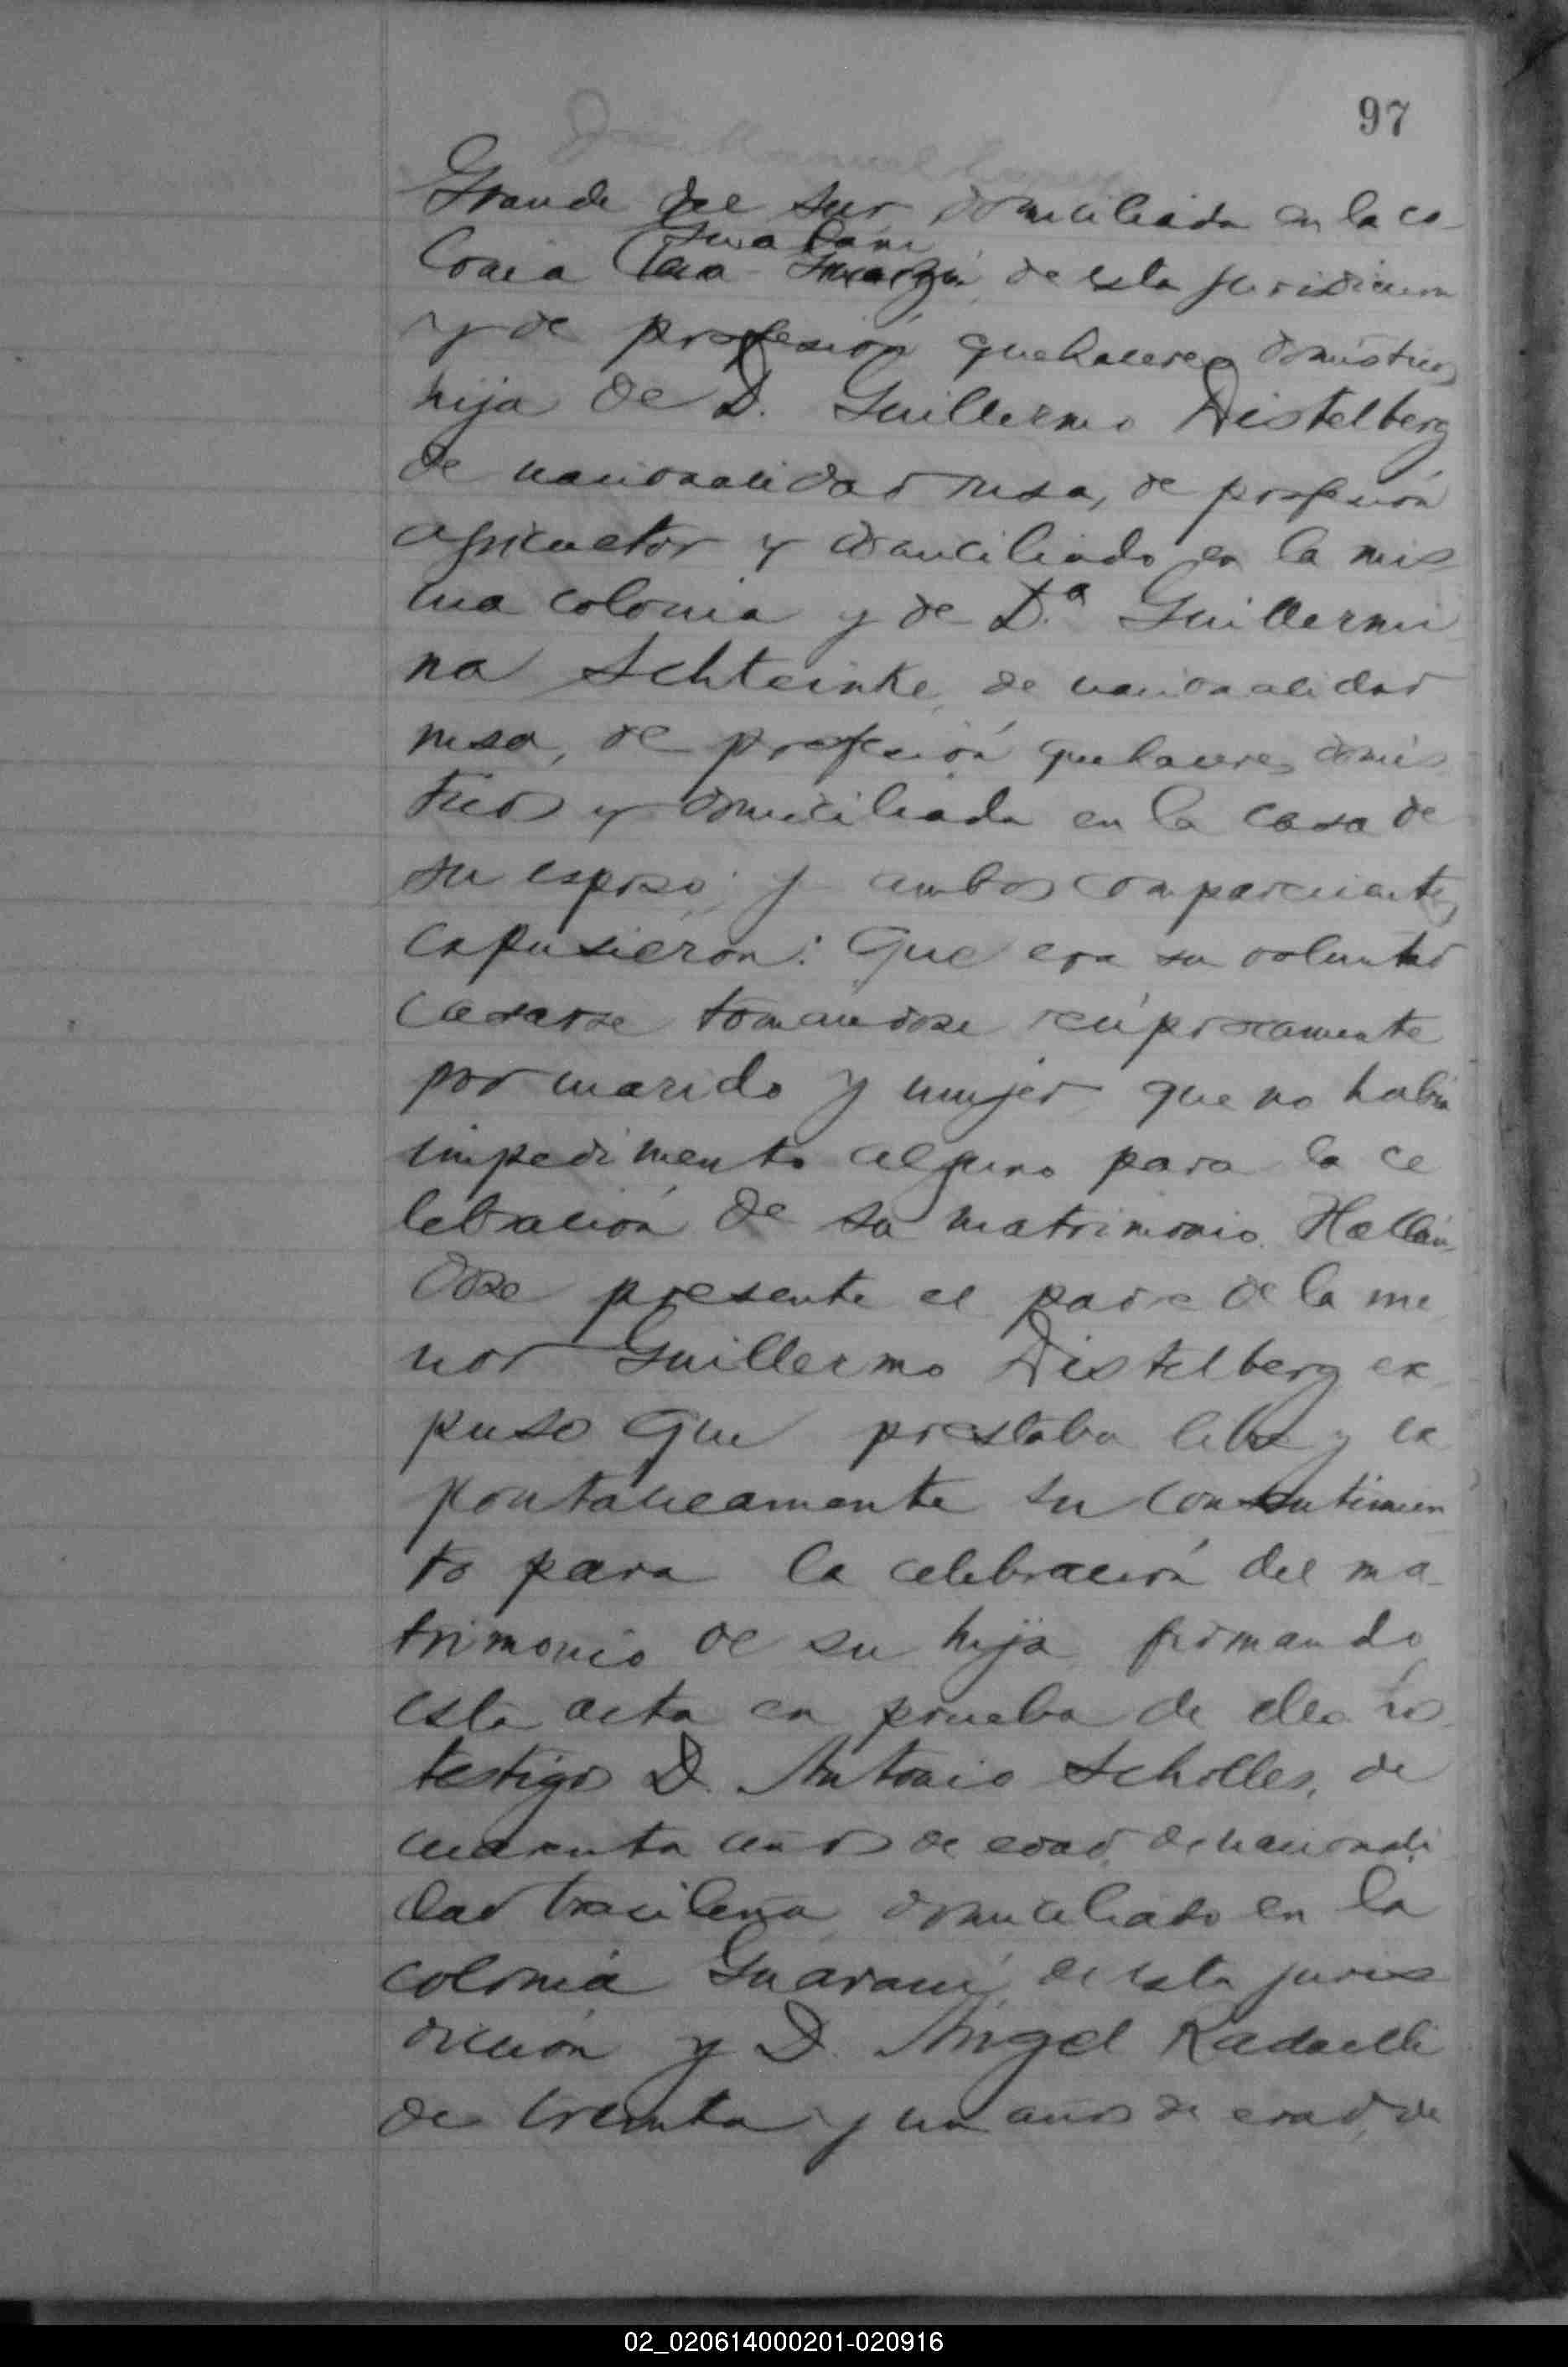 97
Grande del Sur, domiciliada en la co-
Guarani
lonia de esta jurisdiccion
y de profesión quehaceres domésticos
hija de D. Guillermo Distelberg
de nacionalidad rusa, de profesión
agricultor y domiciliado en la mis
ma colonia y de D.ª Guillermi
na Schteinke, de nacionalidad
rusa, de profesión quehaceres domés
ticos y domiciliada en la casa de
su esposo; y ambos comparecientes
expusieron: Que era su voluntad
casarse tomandose recíprocamente
por marido y mujer que no habia
impedimento alguno para la ce
lebración de su matrimonio. Hallán-
dose presente el padre de la me
nor Guillermo Distelberg ex
puso que prestaba libre y es
pontaneamente su consentimien
to para la celebración del ma-
trimonio de su hija firmando
esta acta en prueba de ello. Los
testigos D. Antonio Scholles, de
cuarenta años de edad, de nacionali
dad brasileña, domiciliado en la
colonia Guaraní, de esta juris
dicción y D. Angel Radaelli
de treinta y un años de edad, de
02_020614000201-020916